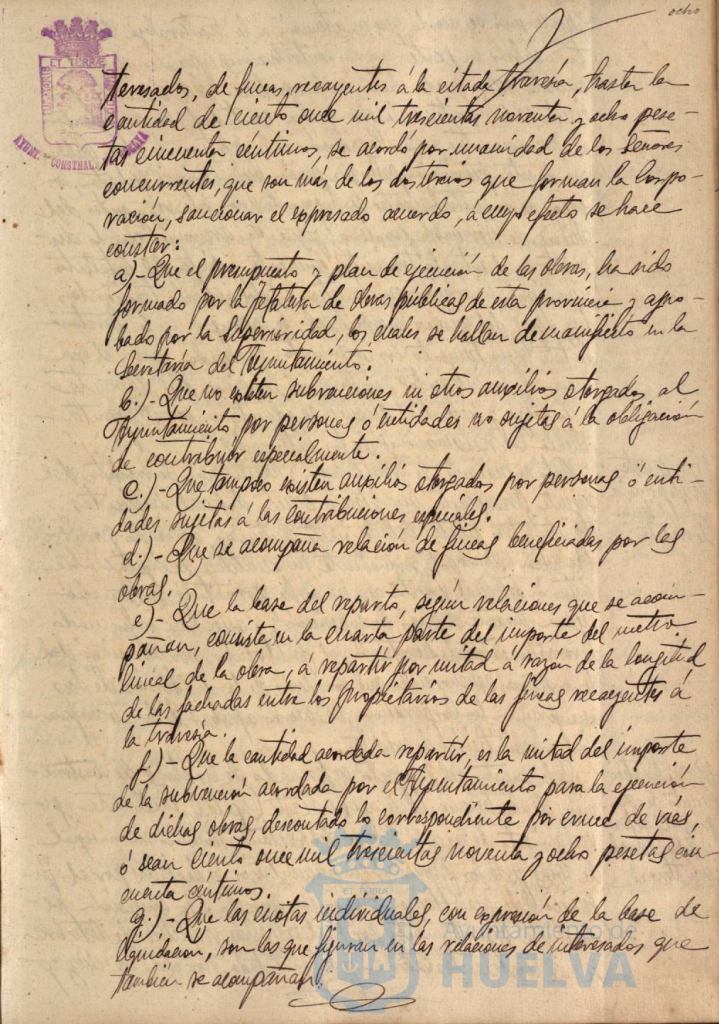 ocho
teresados, de fincas recayentes á la citada travesía, hasta la
cantidad de ciento once mil trescientas noventa y ocho pese-
tas cincuenta céntimos, se acordó por unanimidad de los Señores
concurrentes, que son más de los dos tercios que forman la Corpo-
ración, sancionar el expresado acuerdo, á cuyo efecto se hace
constar:
a)- Que el presupuesto y plan de ejecución de las obras, ha sido
formado por la Jefatura de Obras públicas de esta provincia y apro-
bado por la Superioridad, los cuales se hallan de manifiesto en la
Secretaría del Ayuntamiento.
b.)- Que no existen subvenciones ni otros auxilios otorgados al
Ayuntamiento por personas ó entidades no sujetas á la obligación
de contribuir especialmente.
c.)- Que tampoco existen auxilios otorgados por personas ó enti-
dades sujetas á las contribuciones especiales.
d.)- Que se acompaña relación de fincas beneficiadas por las
obras.
e)- Que la base del reparto, según relaciones que se acom-
pañan, consiste en la cuarta parte del importe del metro
lineal de la obra, á repartir por mitad a razón de la longitud
de las fachadas entre los propietarios de las fincas recayentes á
la travesía.
f)- Que la cantidad acordada repartir, es la mitad del importe
de la subvención acordada por el Ayuntamiento para la ejecución
de dichas obras, descontado lo correspondiente por cruce de vías,
ó sean ciento once mil trescientas noventa y ocho pesetas cin-
cuenta céntimos.
g.)- Que las cuotas individuales, con expresión de la base de
liquidación, son las que figuran en las relaciones de interesados que
también se acompañan.
Ayuntamiento de
HUELVA